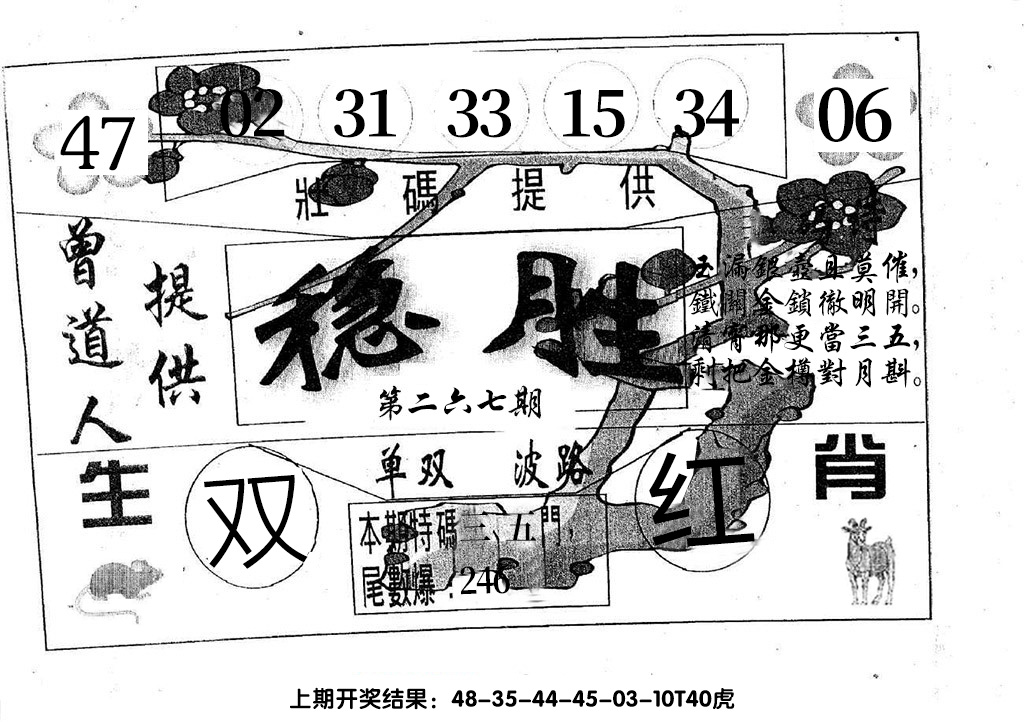 47 02 31 33 15 34 06
壯碼提供
特
曾道人
提供
稳胜
第二六七期
玉漏銀壺且莫催，
鐵關金鎖徹明開。
清宵那更當三五，
剩把金樽對月斟。
生肖
单双 波路
双 红
本期特碼三、五門，
尾數爆：246
上期开奖结果：48-35-44-45-03-10T40虎